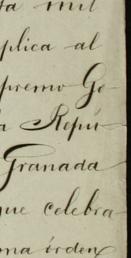 ta mil
plica al
premo Go-
a Repú-
Granada
que celebra
ma órden